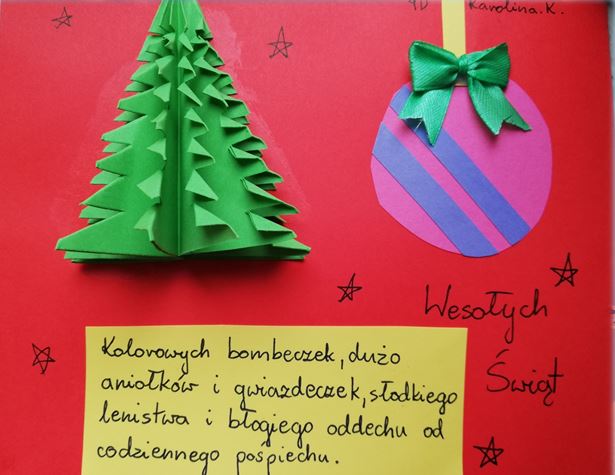 Karolina.K.
Wesołych
Świąt
Kolorowych bombeczek, dużo
aniołków i gwiazdeczek, słodkiego
lenistwa i błogiego oddechu od
codziennego pośpiechu.